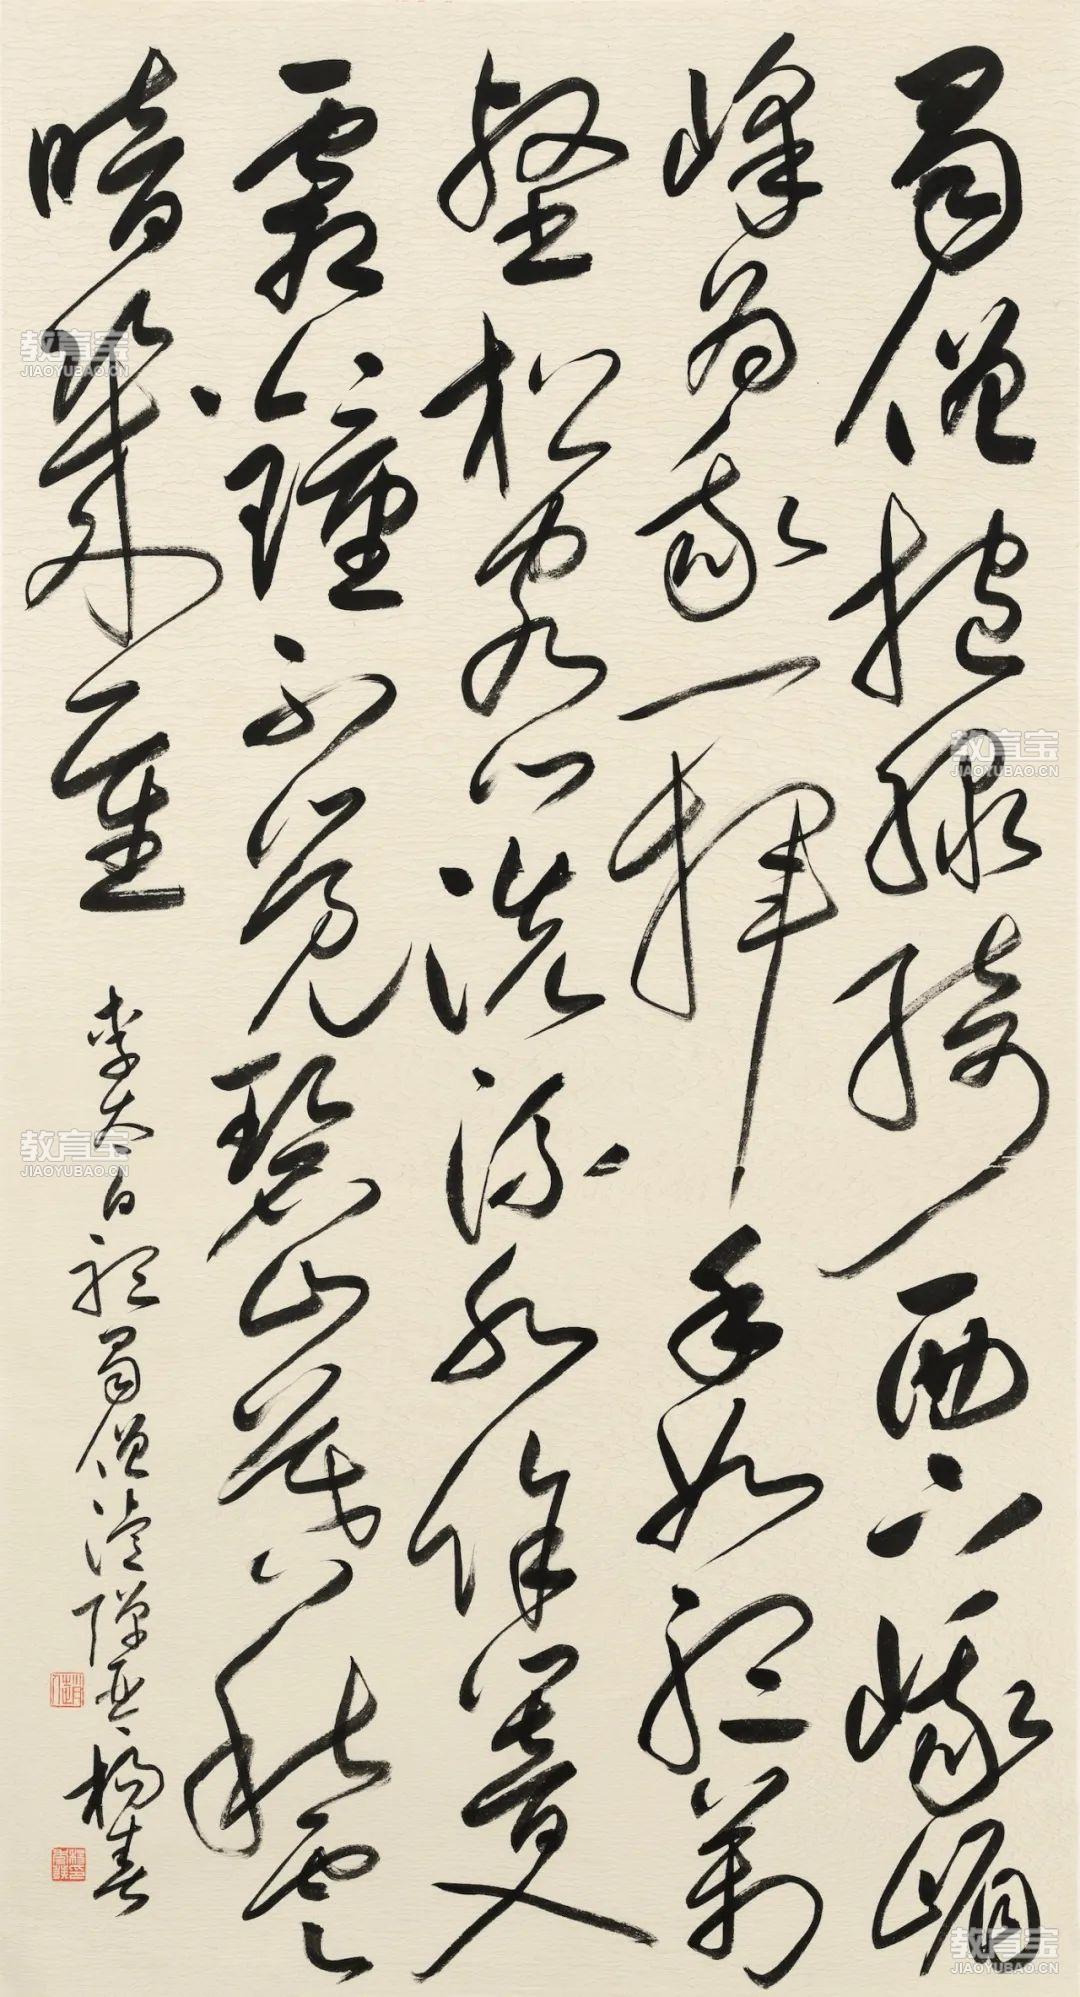 蜀僧抱綠綺西下峨嵋
峰為我一揮手如聽萬
壑松客心洗流水餘響入
霜鐘不覺碧山暮秋雲
暗幾重
李太白聽蜀僧濬彈琴 楊春
教育宝
JIAOYUBAO.CN
教育宝
JIAOYUBAO.CN
教育宝
JIAOYUBAO.CN
教育宝
JIAOYUBAO.CN